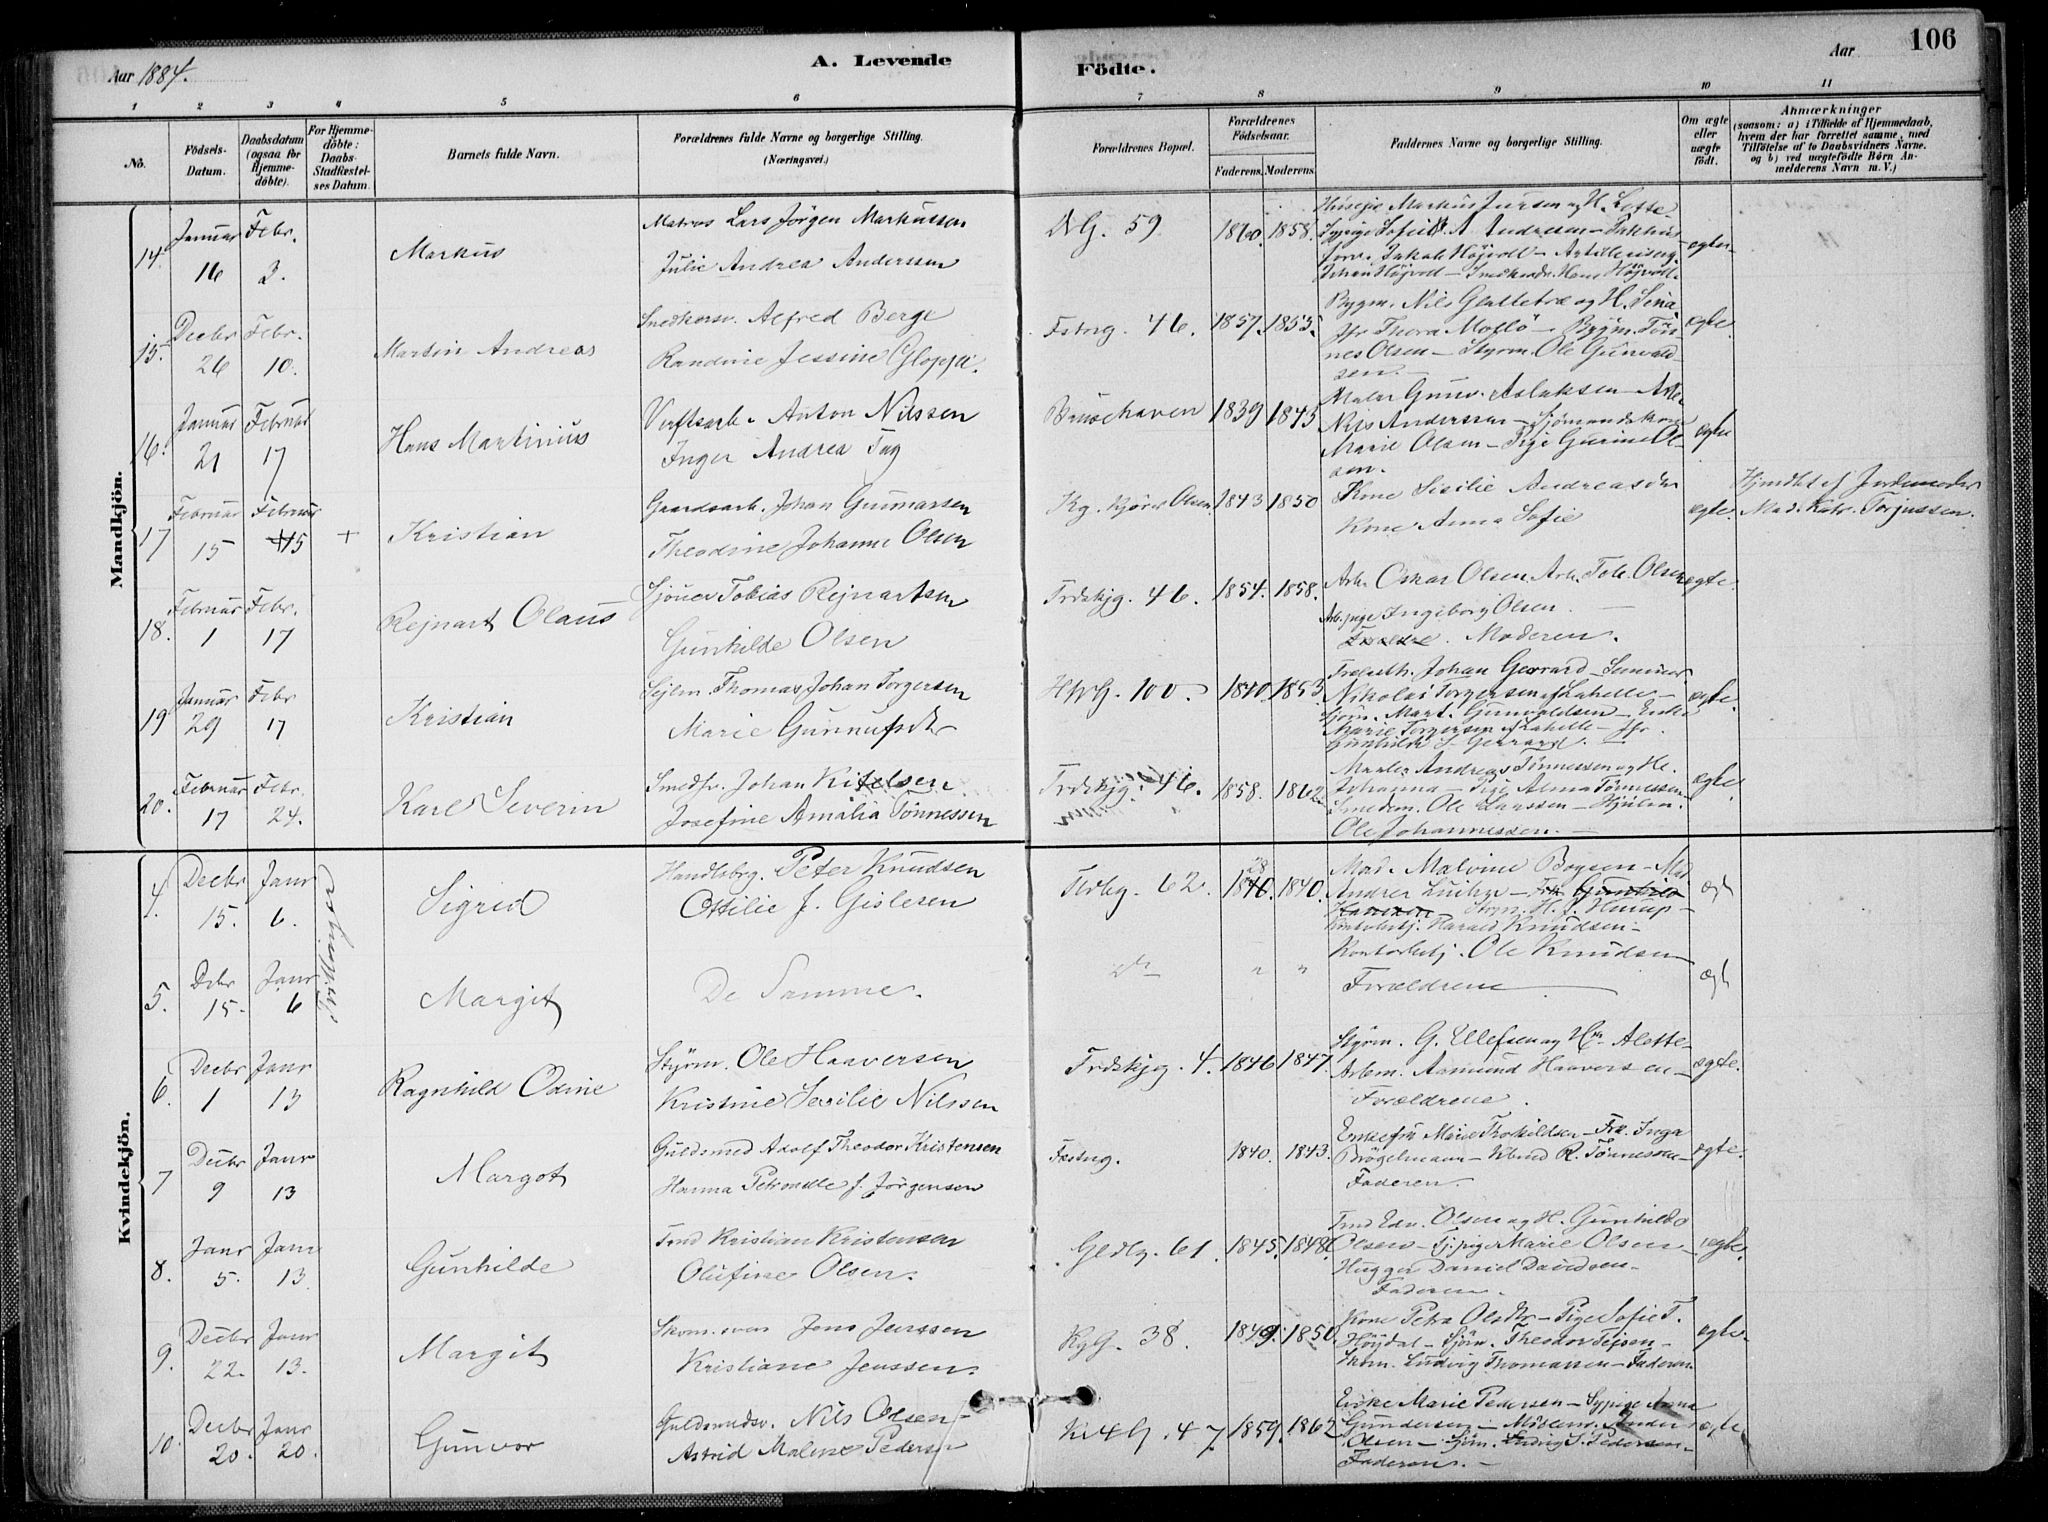 Aar 1884.
A. Levende
Födte.
Aar
106
1 2 3 4 5 6 7 8 9 10 11
No.
Födsels-Datum.
Daabsdatum (ogsaa for Hjemmedöbte).
For Hjemmedöbte: Daabs-Stadfæstelses Datum.
Barnets fulde Navn.
Forældrenes fulde Navne og borgerlige Stilling.
(Næringsvei.)
Forældrenes Bopæl.
Forældrenes Födselsaar.
Faderens. Moderens.
Faddernes Navne og borgerlige Stilling.
Om ægte eller uægte født.
Anmærkninger
(saasom: a) i Tilfælde af Hjemmedaab, hvem der har forrettet samme, med Tilföielse af to Daabsvidners Navne, og b) ved uægtefödte Börn Anmelderens Navn m. V.)
Mandkjön.
14. Januar 16 Febr. 3.
Markus
Matros Lars Jörgen Markussen
Julie Andrea Anderssen
59
1860. 1858.
Jakob Höjvold
Johan Höjvold Hans Höjvold
ægte
15. Decbr 26 Febr. 10.
Martin Andreas
Snedkersv. Alfred Berge
Randine Jessine Gloppe.
Fstng. 46.
1857. 1853.
Bygm. Nils Glattetre og H. Sina
Jfr Thora Moslö – Bygm. Tönnes Olsen – Styrm. Ole Gunvaldsen.
ægte
16. Januar 21 Februar 17
Hans Martinius
Verftsarb. Anton Nilssen
Inger Andrea Tag
1839 1845
Maler Gunv. Aslaksen – Arb.
Nils Anderssen – Sjömandskone
Marie Olsen – Pige Gurine Olsen.
ægte
17 Februar 15 Februar 15 +
Kristian
Gaardsarb. Johan Gunnarsen
Theodine Johanne Olsen
1843 1850
Kone Sisilie Andreasdr
Kone Anna Sofie
ægte.
Hjmdbt af Jordemoder
Mad. Katr. Torjussen.
18. Februar 1 Febr. 17
Rejnart Olaus
Sjöner Tobias Rejnartsen
Gunhilde Olsen
Trdskjg. 46.
1854. 1858.
Arb. Oskar Olsen Arb. Tob. Olsen
Arb. pige Ingeborg Olsen.
Moderen.
ægte
19 Januar 29 Febr 17
Kristian
Sejlm. Thomas Johan Torgersen
Marie Gunnufsdtr
100.
1840. 1853
Johan Gerrard – Seminar.
Nikolai Torgersen af Lahelle –
Sjöm. Mart. Gunvaldsen – Enke
Marie Torgersen af Lahelle – Jfr.
Gunhilde S. Gerrard.
ægte
20. Februar 17 Febr. 24.
Karl Severin
Smedsv. Johan Kitelsen
Josefine Amalia Tönnessen
Trdskjg. 46.
1858. 1862.
Maaler Andreas Tönnessen og H.
Johanna – Pige Alma Tönnessen
Smedem. Ole Larssen – Hjulm.
Ole Johannessen.
ægte
Kvindekjön.
4. Decbr 15. Janr 6.
Tvillinger
Sigrid
Handlsbrg. Peter Knudsen
Ottilie f. Gislesen
62.
1840. 1840.
Mad. Malvine Boysen – Mad
Styrm. H. J. Hurup –
Kontorbetj. Harald Knudsen –
ægt
5. Dcbr 15. Janr 6
Margit
De Samme.
" "
Kontorbetj. Ole Knudsen
Forældrene
ægt
6. Decbr 1 Janr 13
Ragnhild Odine
Styrm. Ole Haaversen
Kristine Sesilie Nilssen
Trdskjg. 4.
1846 1847.
Styrm. G. Ellefsen og H. Alette –
Arbm. Asmund Haaversen –
Forældrene.
ægte.
7 Decbr 9 Janr 13
Margot
Guldsmed Adolf Theodor Kristensen
Hanna Petronelle f. Jörgensen
Fæstng.
1840. 1843.
Enkefru Marie Torkildsen – Frk. Inga
Brögelmann – Kbmd R. Tönnessen –
Faderen.
ægte.
8. Janr 5. Janr 13.
Gunhilde
Kristian Kristensen
Olufine Olsen.
Gldbg. 61.
1845. 1848.
Edv. Olsen og H. Gunhilde
Olsen – Tj.pige Marie Olsen –
Hugger Daniel Davidsen –
Faderen.
ægte.
9. Decbr 22. Janr 13.
Margit
Skom. svend Jens Jenssen
Kristiane Jenssen.
KgG. 38.
1849. 1850.
Kone Petra Olsdtr – Pige Sofie T.
Höydal – Sjöm. Theodor
Skom. Ludvig Thomassen – Faderen.
ægte
10. Decbr 20. Janr 20.
Gunvor
Guldsmedsv. Nils Olsen –
Astrid Malene Pedersen
47
1859. 1862
Enke Marie Pedersen – Sypige Anna
Gundersen – Anders
Olsen – Sjöm. Ludvig S. Pedersen –
Faderen. –
ægte